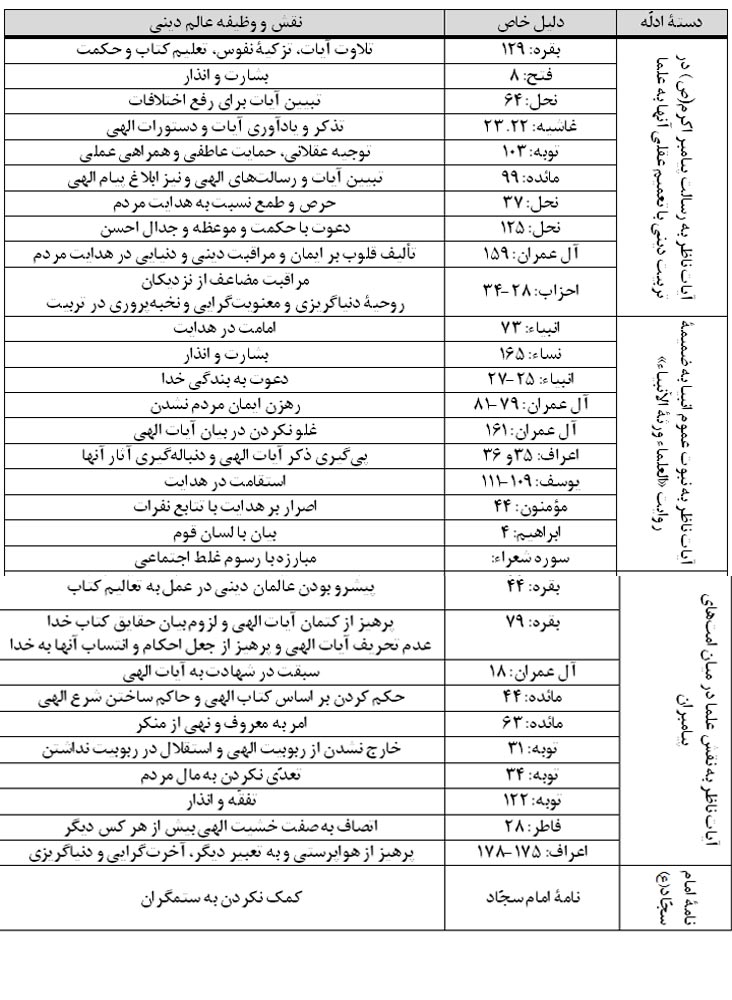 دستهٔ ادلّه	دلیل خاص	نقش و وظیفه عالم دینی
آیات ناظر به رسالت پیامبر اکرم(ص) در
تربیت دینی با تعمیم عقلی آنها به علما
بقره: ۱۲۹	تلاوت آیات، تزکیهٔ نفوس، تعلیم کتاب و حکمت
فتح: ۸	بشارت و انذار
نحل: ۶۴	تبیین آیات برای رفع اختلافات
غاشیه: ۲۳.۲۲	تذکر و یادآوری آیات و دستورات الهی
توبه: ۱۰۳	توجیه عقلانی، حمایت عاطفی و همراهی عملی
مائده: ۹۹	تبیین آیات و رسالت‌های الهی و نیز ابلاغ پیام الهی
نحل: ۳۷	حرص و طمع نسبت به هدایت مردم
نحل: ۱۲۵	دعوت با حکمت و موعظه و جدال احسن
آل عمران: ۱۵۹	تألیف قلوب بر ایمان و مراقبت دینی و دنیایی در هدایت مردم
احزاب: ۲۸-۳۴	مراقبت مضاعف از نزدیکان
روحیهٔ دنیاگریزی و معنویت‌گرایی و نخبه‌پروری در تربیت
آیات ناظر به نبوت عموم انبیا به ضمیمهٔ
روایت «العلماء ورثة الأنبیاء»
انبیاء: ۷۳	امامت در هدایت
نساء: ۱۶۵	بشارت و انذار
انبیاء: ۲۵-۲۷	دعوت به بندگی خدا
آل عمران: ۷۹-۸۱	رهزن ایمان مردم نشدن
آل عمران: ۱۶۱	غلو نکردن در بیان آیات الهی
اعراف: ۳۵و ۳۶	پی‌گیری ذکر آیات الهی و دنباله‌گیری آثار آنها
یوسف: ۱۰۹-۱۱۱	استقامت در هدایت
مؤمنون: ۴۴	اصرار بر هدایت با تتابع نفرات
ابراهیم: ۴	بیان با لسان قوم
سوره شعراء:	مبارزه با رسوم غلط اجتماعی
آیات ناظر به نقش علما در میان امت‌های
پیامبران
بقره: ۴۴	پیشرو بودن عالمان دینی در عمل به تعالیم کتاب
بقره: ۷۹	پرهیز از کتمان آیات الهی و لزوم بیان حقایق کتاب خدا
عدم تحریف آیات الهی و پرهیز از جعل احکام و انتساب آنها به خدا
آل عمران: ۱۸	سبقت در شهادت به آیات الهی
مائده: ۴۴	حکم کردن بر اساس کتاب الهی و حاکم ساختن شرع الهی
مائده: ۶۳	امر به معروف و نهی از منکر
توبه: ۳۱	خارج نشدن از ربوبیت الهی و استقلال در ربوبیت نداشتن
توبه: ۳۴	تعدّی نکردن به مال مردم
توبه: ۱۲۲	تفقّه و انذار
فاطر: ۲۸	اتصاف به صفت خشیت الهی بیش از هر کس دیگر
اعراف: ۱۷۵-۱۷۸	پرهیز از هواپرستی و به تعبیر دیگر، آخرت‌گرایی و دنیاگریزی
نامهٔ امام
سجّاد(ع)
نامهٔ امام سجّاد	کمک نکردن به ستمگران